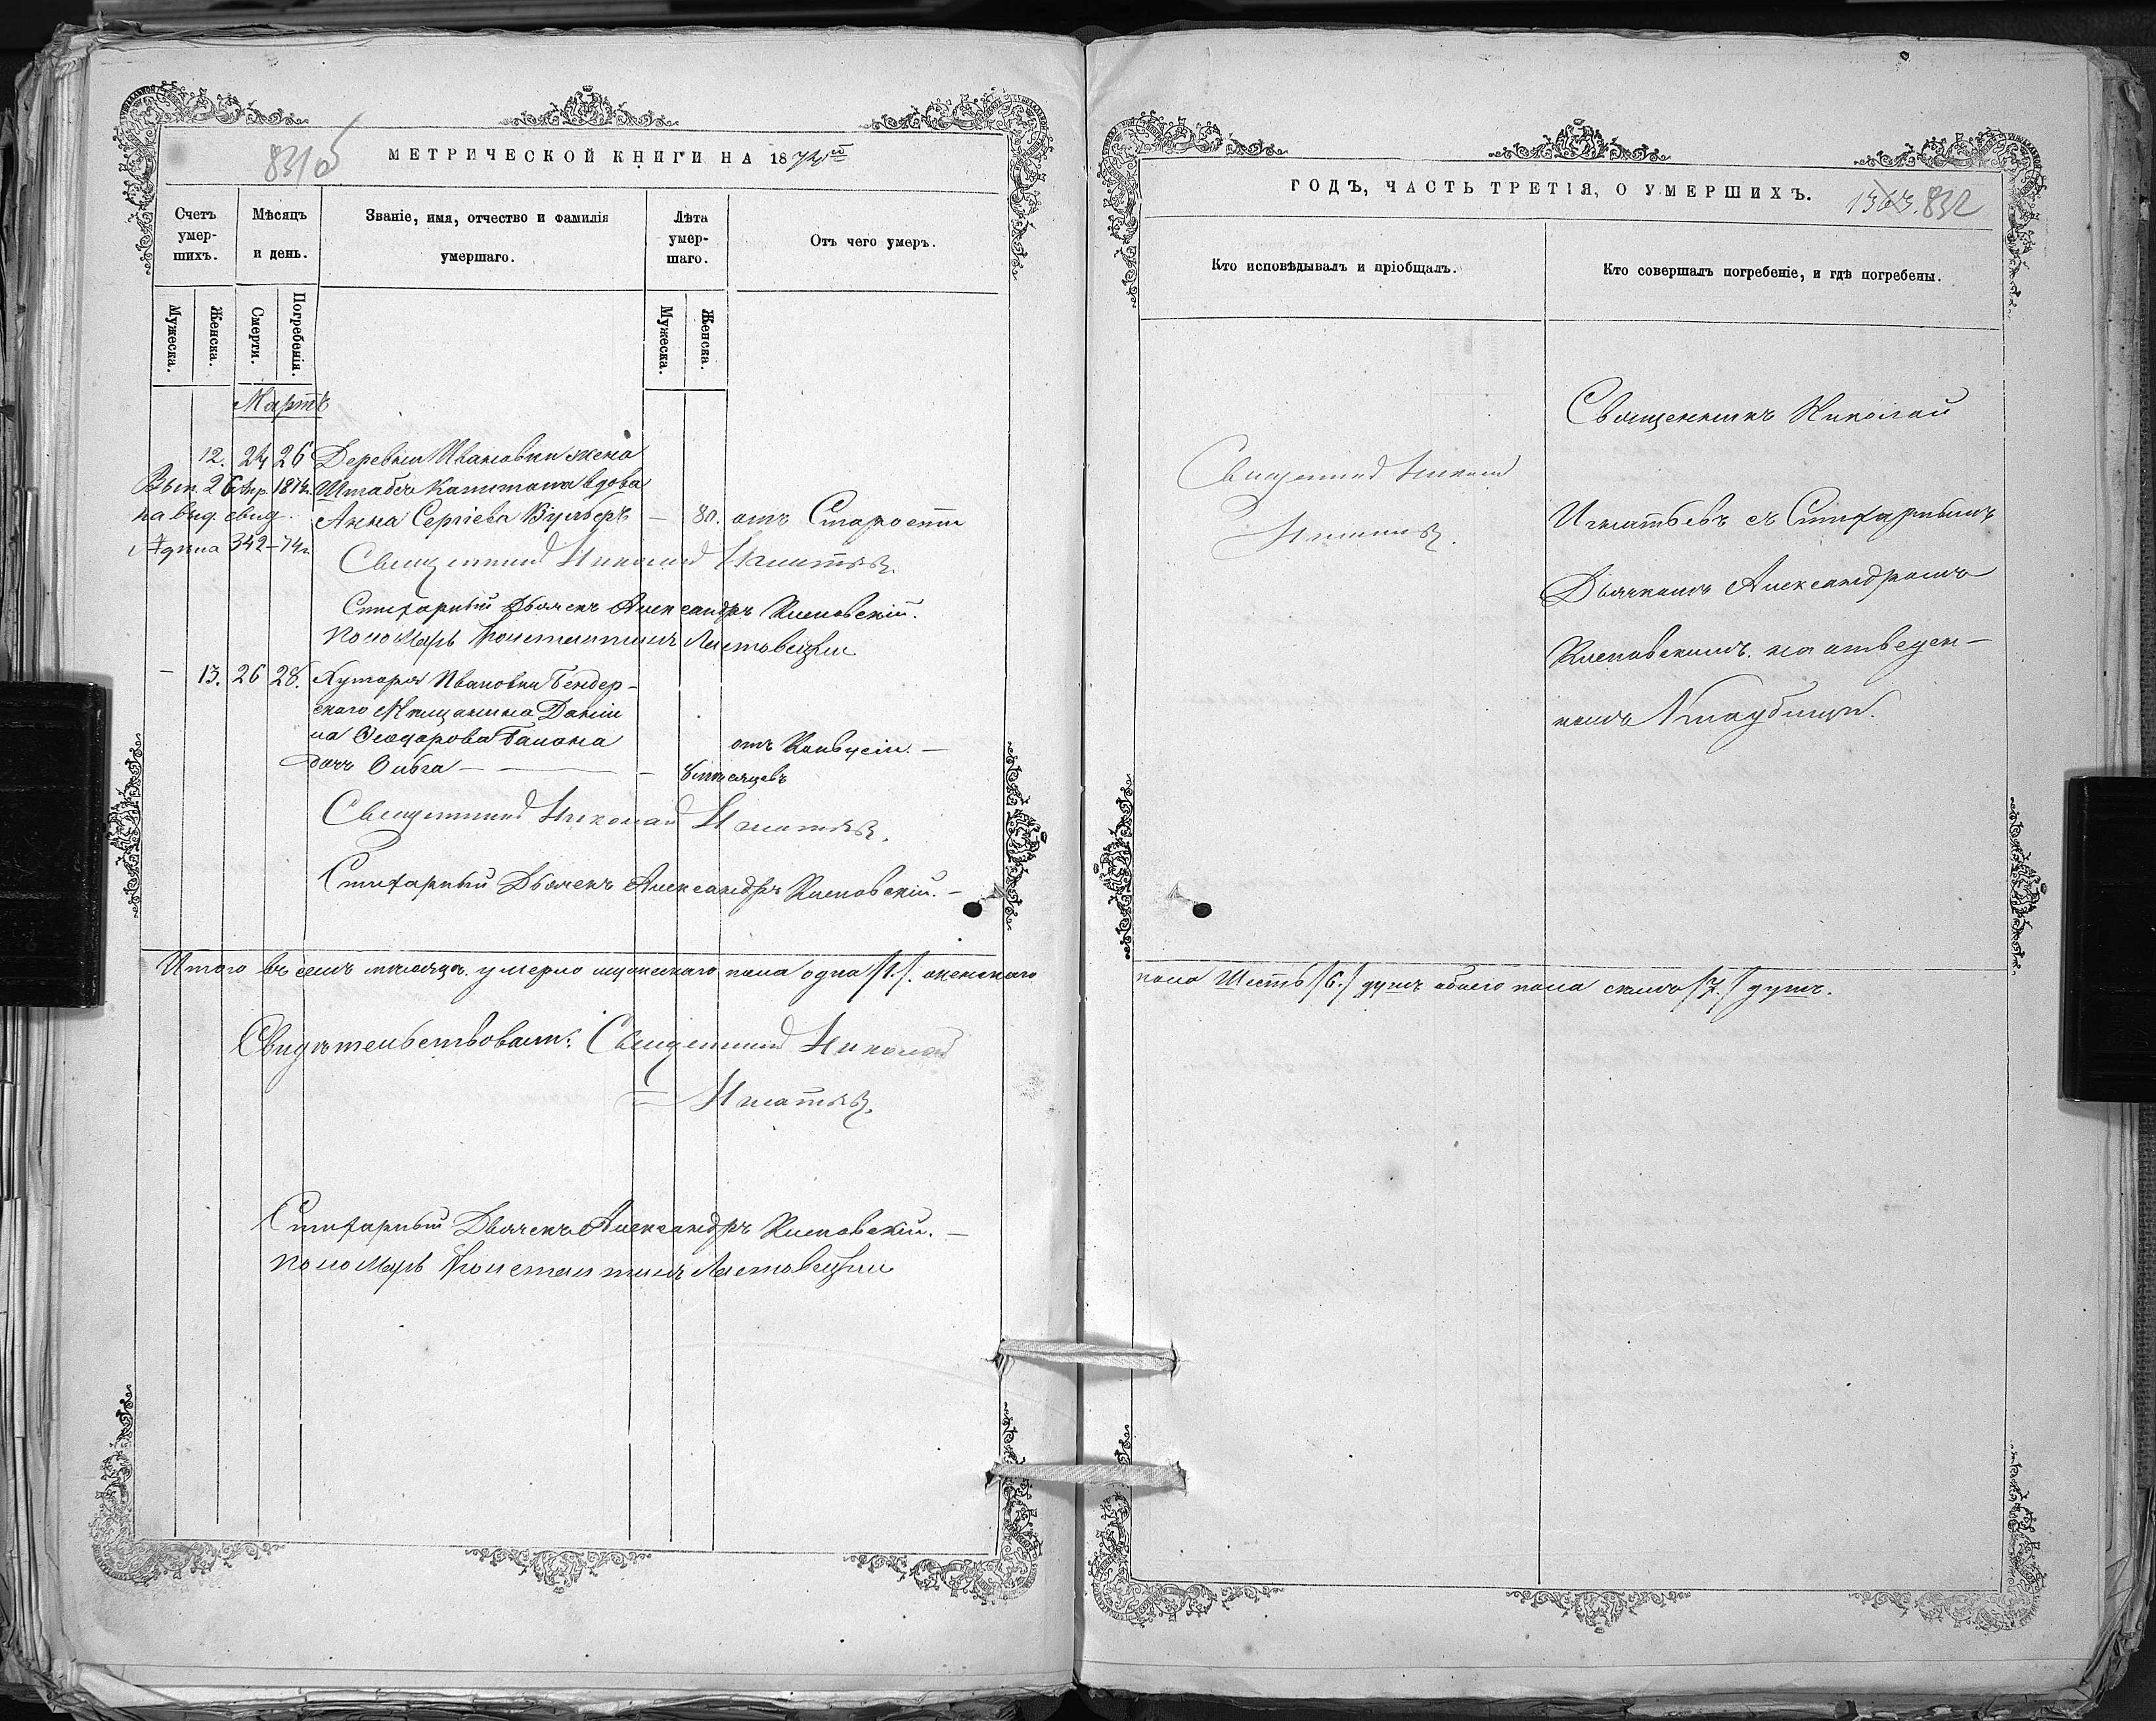 831об
МЕТРИЧЕСКОЙ КНИГИ НА 1874й
Счетъ умер-шихъ.
Мѣсяцъ и день.
Званіе, имя, отчество и фамилія умершаго.
Лѣта умер-шаго.
Отъ чего умеръ.
Мужеска.
Женска.
Смерти.
Погребенія.
Мужеска.
Женска.
Мартъ
12. 24 26 Деревни Ивановки жена
Штабсъ Капитана вдова
Анна Сергіева Вульферъ — 80. отъ Старости
Вып. 26 Апр. 1874г.
на выд. свид.
342–74г.
Священникъ Николай Игнатьевъ.
Стихарный Дьячекъ Александръ Клеповскій.
Пономарь Константинъ Листовецкій
— 13. 26 28. Хутора Ивановки Бендер-
скаго Мѣщанина Даніи
ла Ѳеодорова Балана
дочь Ольга — — 8 мѣсяцевъ
отъ Конвусіи. —
Священникъ Николай Игнатьевъ.
Стихарный Дьячекъ Александръ Клеповскій. —
Итого въ семъ мѣсяцѣ умерло мужескаго пола одна /1/. женскаго
Свидѣтельствовали: Священникъ Николай
Игнатьевъ.
Стихарный Дьячекъ Александръ Клеповскій. —
Пономарь Константинъ Листовецкій
ГОДЪ, ЧАСТЬ ТРЕТІЯ, О УМЕРШИХЪ.
1363. 832
Кто исповѣдывалъ и пріобщалъ.
Кто совершалъ погребеніе, и гдѣ погребены.
Священникъ Николай
Игнатьевъ.
Священникъ Николай
Игнатьевъ съ Стихарнымъ
Дьячкомъ Александромъ
Клеповскимъ. на отведен-
номъ Кладбищи.
пола Шесть /6./ душъ обоего пола семь /7./ душъ.